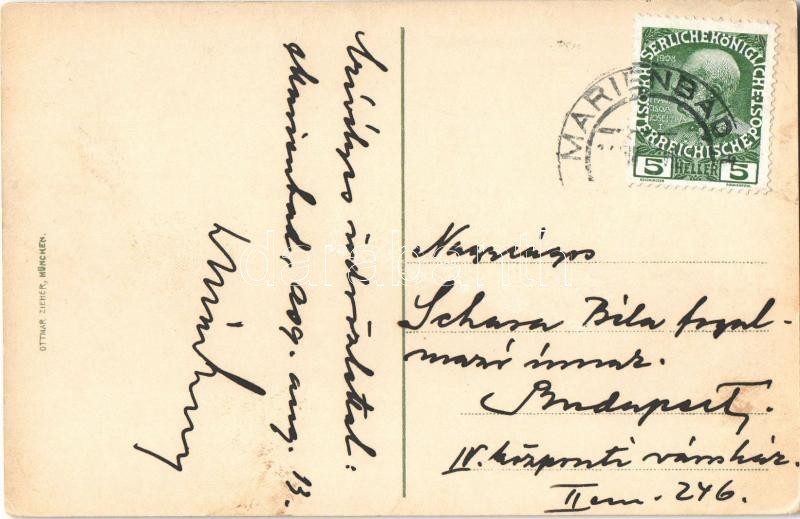 Szívélyes üdvözlettel:
Marienbad, 909. aug. 13.
OTTMAR ZIEHER, MÜNCHEN.
MARIENBAD
KAISERLICHEKÖNIGLICHE
ÖSTERREICHISCHEPOST
1908
5 HELLER 5
Nagyságos
Schara Béla fogal-
mazó úrnak.
Budapest,
IV. központi városház.
II em. 246.